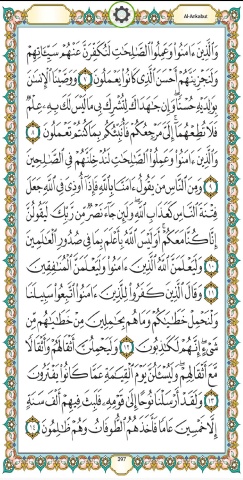 Al-Ankabut
وَالَّذِينَ ءَامَنُوا وَعَمِلُوا الصَّالِحَاتِ لَنُكَفِّرَنَّ عَنْهُمْ سَيِّئَاتِهِمْ
وَلَنَجْزِيَنَّهُمْ أَحْسَنَ الَّذِي كَانُوا يَعْمَلُونَ ٧ وَوَصَّيْنَا الْإِنسَانَ
بِوَالِدَيْهِ حُسْنًا وَإِن جَاهَدَاكَ لِتُشْرِكَ بِي مَا لَيْسَ لَكَ بِهِ عِلْمٌ
فَلَا تُطِعْهُمَا إِلَيَّ مَرْجِعُكُمْ فَأُنَبِّئُكُم بِمَا كُنتُمْ تَعْمَلُونَ ٨
وَالَّذِينَ ءَامَنُوا وَعَمِلُوا الصَّالِحَاتِ لَنُدْخِلَنَّهُمْ فِي الصَّالِحِينَ
٩ وَمِنَ النَّاسِ مَن يَقُولُ ءَامَنَّا بِاللَّهِ فَإِذَا أُوذِيَ فِي اللَّهِ جَعَلَ
فِتْنَةَ النَّاسِ كَعَذَابِ اللَّهِ وَلَئِن جَاءَ نَصْرٌ مِّن رَّبِّكَ لَيَقُولُنَّ
إِنَّا كُنَّا مَعَكُمْ أَوَلَيْسَ اللَّهُ بِأَعْلَمَ بِمَا فِي صُدُورِ الْعَالَمِينَ
١٠ وَلَيَعْلَمَنَّ اللَّهُ الَّذِينَ ءَامَنُوا وَلَيَعْلَمَنَّ الْمُنَافِقِينَ
١١ وَقَالَ الَّذِينَ كَفَرُوا لِلَّذِينَ ءَامَنُوا اتَّبِعُوا سَبِيلَنَا
وَلْنَحْمِلْ خَطَايَاكُمْ وَمَا هُم بِحَامِلِينَ مِنْ خَطَايَاهُم مِّن
شَيْءٍ إِنَّهُمْ لَكَاذِبُونَ ١٢ وَلَيَحْمِلُنَّ أَثْقَالَهُمْ وَأَثْقَالًا
مَّعَ أَثْقَالِهِمْ وَلَيُسْأَلُنَّ يَوْمَ الْقِيَامَةِ عَمَّا كَانُوا يَفْتَرُونَ
١٣ وَلَقَدْ أَرْسَلْنَا نُوحًا إِلَى قَوْمِهِ فَلَبِثَ فِيهِمْ أَلْفَ سَنَةٍ
إِلَّا خَمْسِينَ عَامًا فَأَخَذَهُمُ الطُّوفَانُ وَهُمْ ظَالِمُونَ ١٤
397